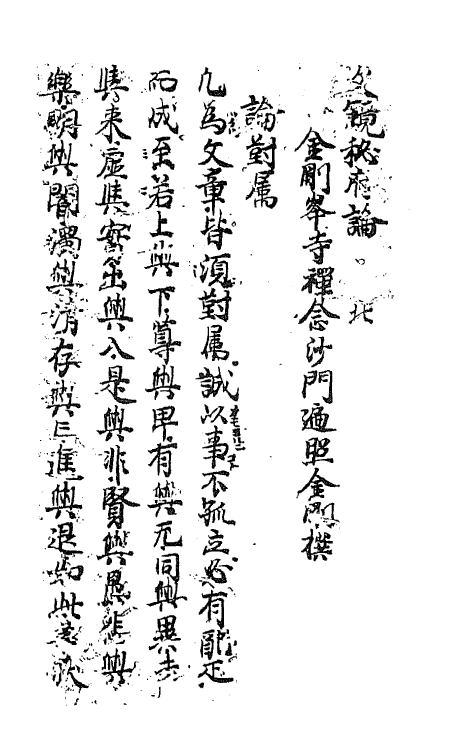 文鏡秘府論 北
金剛峯寺禪念沙門遍照金剛撰
論對属
凡為文章皆須對属誠以事不孤立必有配疋
而成至若上與下尊與卑有與无同與異去
與來虛與實出與入是與非賢與愚悲與
樂明與闇濁與清存與亡進與退如此等狀